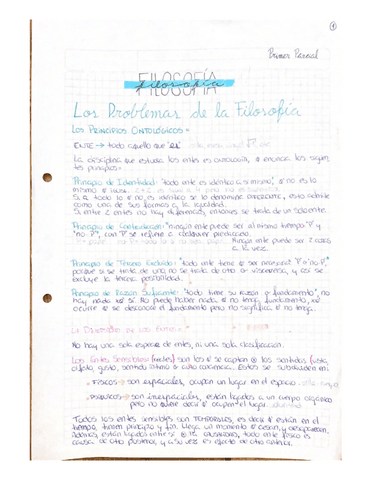 1
Primer Parcial
FILOSOFÍA
filosofía
FILOSOFÍA
Los Problemas de la Filosofía
Los Principios Ontológicos:
ENTE → todo aquello que "es"
La disciplina que estudia los entes es ONTOLOGÍA, enuncia los siguien
tes principios:
Principio de Identidad: "todo ente es idéntico a si mismo", no es lo
mismo igual.
Si a todo lo no es idéntico se lo denomina DIFERENTE, esto admite
como una de sus formas a la igualdad.
Si entre 2 entes no hay diferencias, entonces se trata de un solo ente.
Principio de Contradicción: "ningún ente puede ser al mismo tiempo "P" y
"no-P", con "P" se refiere a cualquier predicado.
Ningún ente puede ser 2 cosas
a la vez.
Principio de Tercero Excluido: "todo ente tiene ser necesaria "P" o "no-P",
porque si se trata de uno no se trata de otro o viceversa, y así se
excluye la tercera posibilidad.
Principio de Razón Suficiente: "todo tiene su razón o fundamento", no
hay nada si. No puede haber nada no tenga fundamento,
ocurre se desconoce el fundamento pero no significa no tenga.
La Diversidad de los Entes:
No hay una sola especie de entes, ni una sola clasificación.
Los Entes Sensibles (reales) son los se captan los sentidos (vista,
olfato, gusto, sentido íntimo o auto conciencia. Estos se subdividen en:
• FÍSICOS → son espaciales, ocupan un lugar en el espacio
• PSÍQUICOS → son inespaciales, están ligados a un cuerpo orgánico
pero no quiere decir ocupen el lugar.
Todos los entes sensibles son TEMPORALES, es decir están en el
tiempo, tienen principio y fin, llega un momento cesan y desaparecen.
Además, están ligados entre si la CAUSALIDAD, todo ente físico es
causa de otro posterior, y a su vez es efecto de otro anterior.